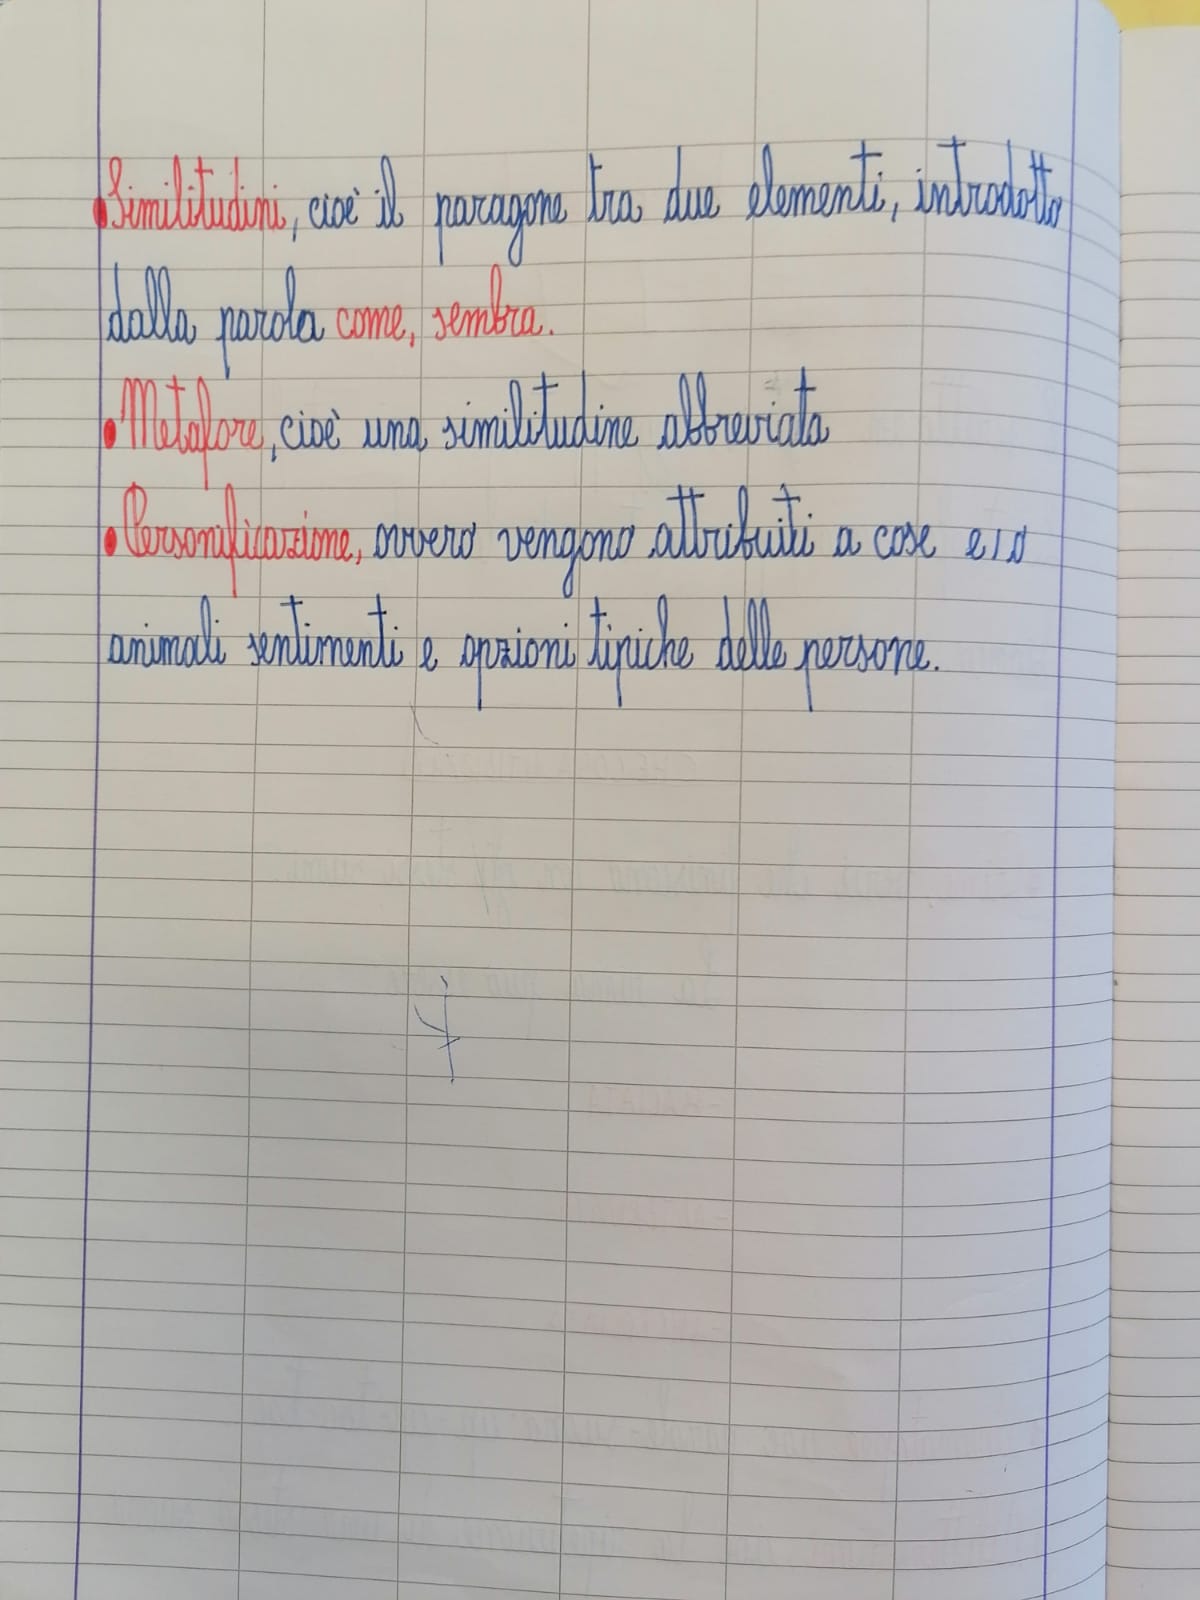 • Similitudini, cioè il paragone tra due elementi, introdotto
dalla parola come, sembra.
• Metafore, cioè una similitudine abbreviata
• Personificazione, ovvero vengono attribuiti a cose e/o
animali sentimenti e opzioni tipiche delle persone.